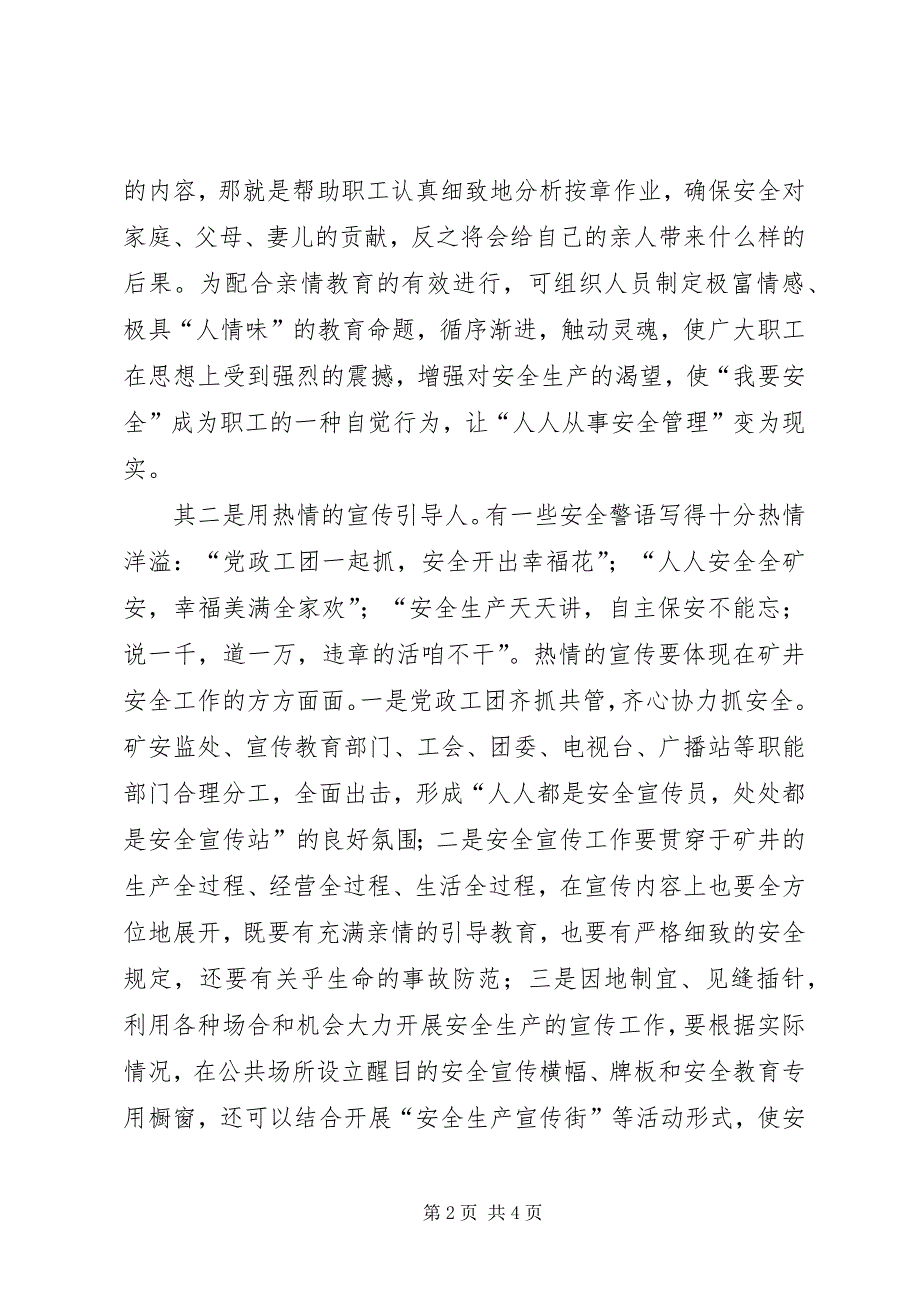 的内容，那就是帮助职工认真细致地分析按章作业，确保安全对
家庭、父母、妻儿的贡献，反之将会给自己的亲人带来什么样的
后果。为配合亲情教育的有效进行，可组织人员制定极富情感、
极具“人情味”的教育命题，循序渐进，触动灵魂，使广大职工
在思想上受到强烈的震撼，增强对安全生产的渴望，使“我要安
全”成为职工的一种自觉行为，让“人人从事安全管理”变为现
实。
其二是用热情的宣传引导人。有一些安全警语写得十分热情
洋溢：“党政工团一起抓，安全开出幸福花”；“人人安全全矿
安，幸福美满全家欢”；“安全生产天天讲，自主保安不能忘；
说一千，道一万，违章的活咱不干”。热情的宣传要体现在矿井
安全工作的方方面面。一是党政工团齐抓共管，齐心协力抓安全。
矿安监处、宣传教育部门、工会、团委、电视台、广播站等职能
部门合理分工，全面出击，形成“人人都是安全宣传员，处处都
是安全宣传站”的良好氛围；二是安全宣传工作要贯穿于矿井的
生产全过程、经营全过程、生活全过程，在宣传内容上也要全方
位地展开，既要有充满亲情的引导教育，也要有严格细致的安全
规定，还要有关乎生命的事故防范；三是因地制宜、见缝插针，
利用各种场合和机会大力开展安全生产的宣传工作，要根据实际
情况，在公共场所设立醒目的安全宣传横幅、牌板和安全教育专
用橱窗，还可以结合开展“安全生产宣传街”等活动形式，使安
第 2 页 共 4 页